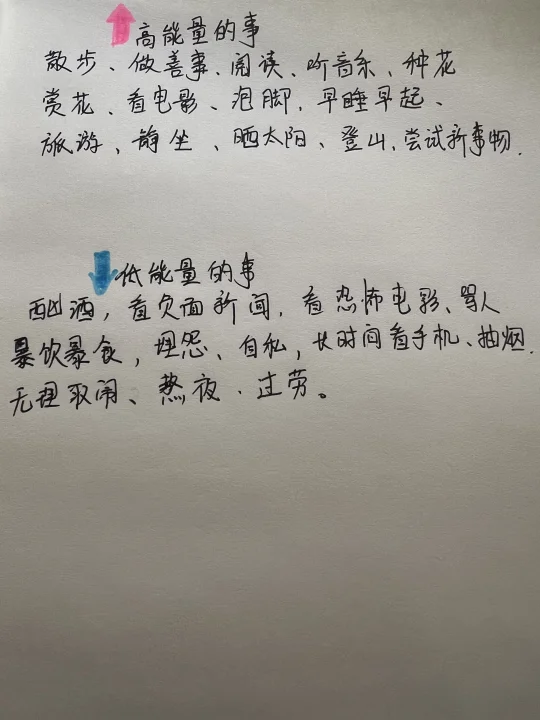 高能量的事
散步、做善事、阅读、听音乐、种花
赏花、看电影、泡脚,早睡早起、
旅游,静坐、晒太阳、登山,尝试新事物.
低能量的事
酗酒,看负面新闻,看恐怖电影、骂人
暴饮暴食,埋怨、自私,长时间看手机、抽烟.
无理取闹、熬夜.过劳。